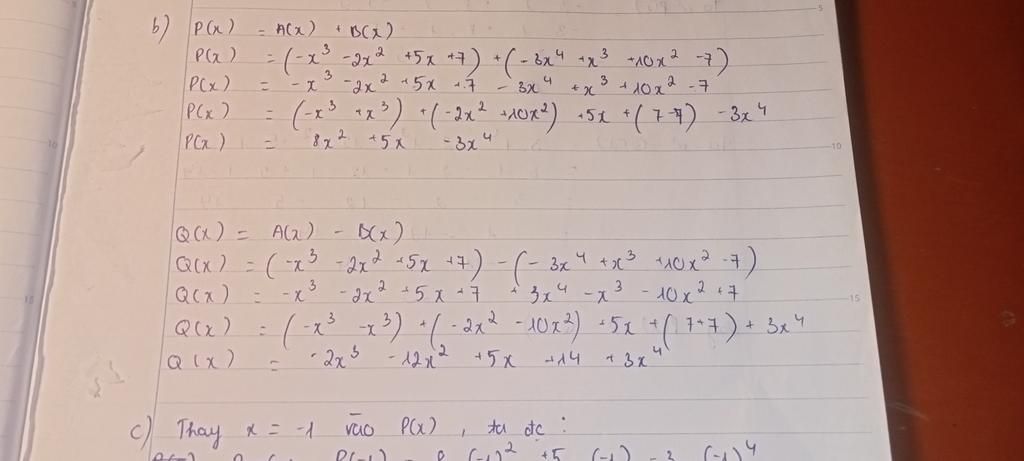 b) P(x) = A(x) + B(x)
P(x) = (-x³ -2x² +5x +7) + (-3x⁴ +x³ +10x² -7)
P(x) = -x³ -2x² +5x +7 -3x⁴ +x³ +10x² -7
P(x) = (-x³ +x³) + (-2x² +10x²) +5x +(7-7) -3x⁴
P(x) = 8x² +5x -3x⁴
Q(x) = A(x) - B(x)
Q(x) = (-x³ -2x² +5x +7) - (-3x⁴ +x³ +10x² -7)
Q(x) = -x³ -2x² +5x +7 +3x⁴ -x³ -10x² +7
Q(x) = (-x³ -x³) + (-2x² -10x²) +5x +(7+7) + 3x⁴
Q(x) = -2x³ -12x² +5x +14 +3x⁴
c) Thay x = -1 vào P(x), ta đc:
P(-1) = 8 (-1)² +5 (-1) -3 (-1)⁴